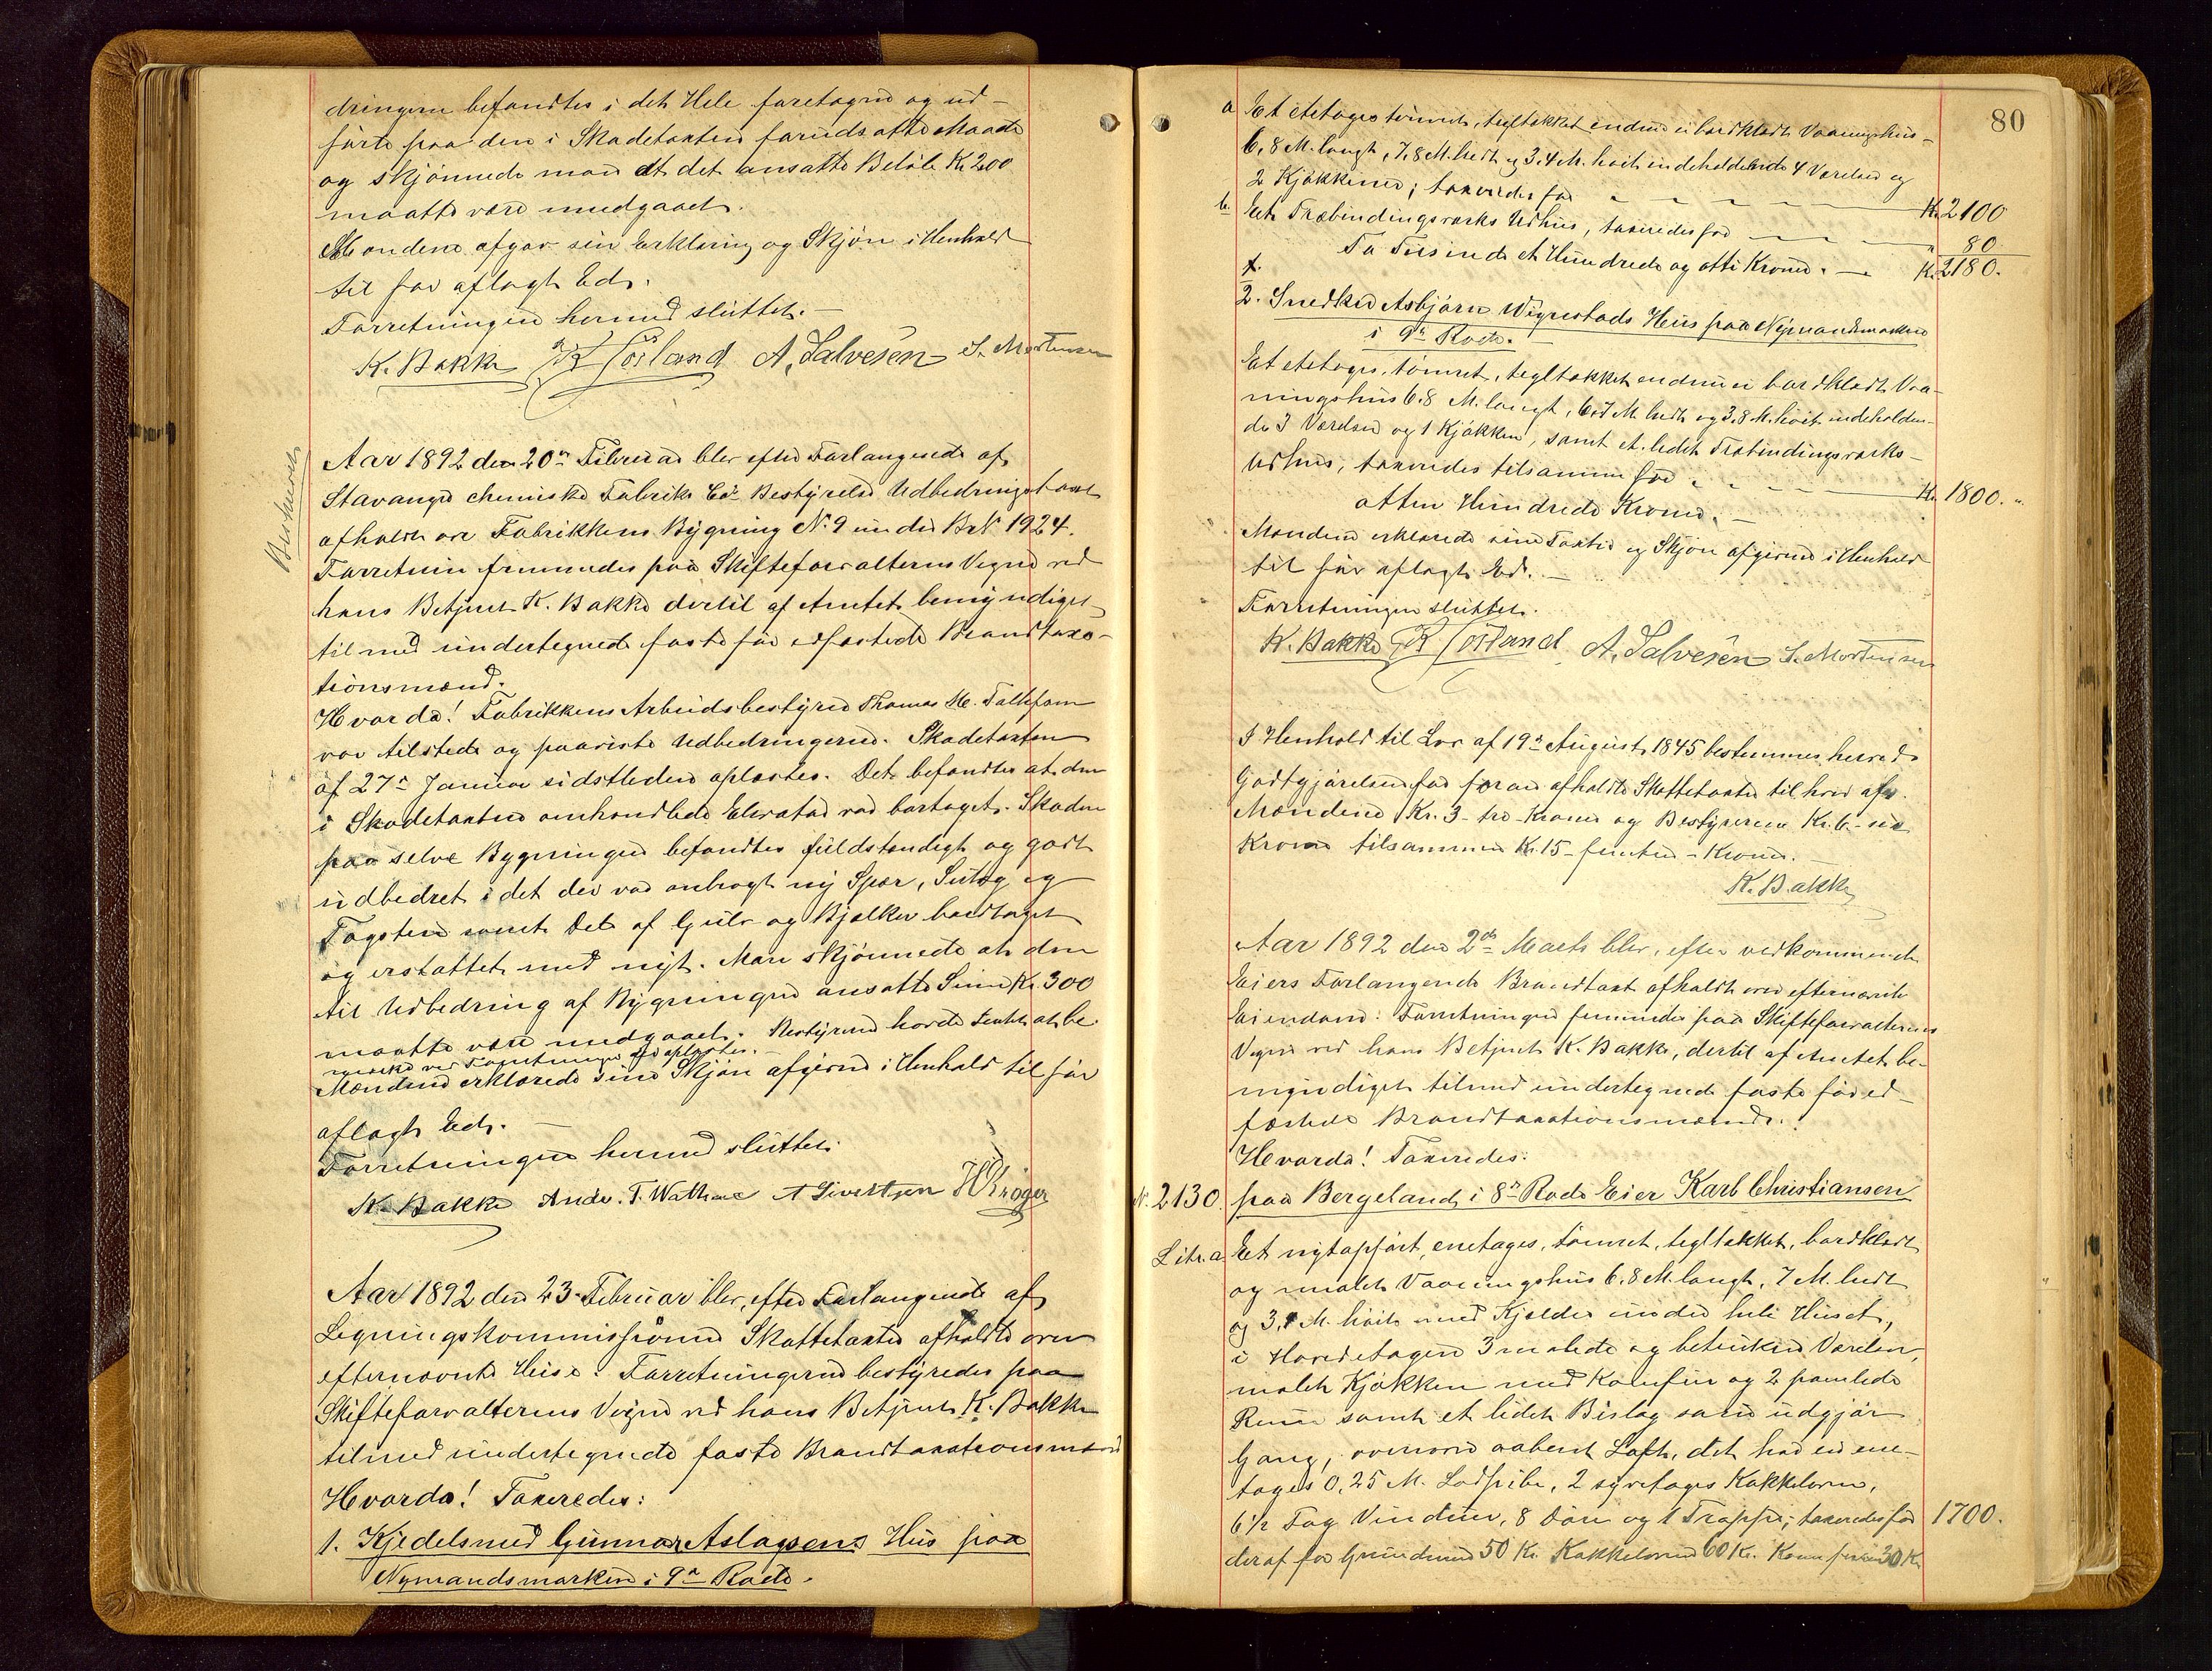 dringerne befandtes i det Hele foretagne og ud-
førte paa den i Skadetaxten forudsatte Maade
og skjønnede man at det ansatte Beløb Kr 200
maatte være medgaaet.
Mændene afgav sin Erklæring og Skjøn i Henhold
til før aflagt Ed.
Forretningen hermed sluttet.
K. Bakke R Josland A. Salvesen S. Mortensen
Aar 1892 den 20de Februar blev efter Forlangende af
Stavanger chemiske Fabriks Co's Bestyrelse Udbedringstaxt
afholdt over Fabrikkens Bygning No 9 under Br.No 1924.
Forretnin fremmedes paa Skifteforvalterens Vegne ved
hans Betjent K. Bakke dertil af Amtet bemyndiget
tilmed undertegnede faste før edfæstede Brandtaxa-
tionsmænd.
Hvorda! Fabrikkens Arbeidsbestyrer Thomas M.
var tilstede og paaviste Udbedringerne. Skadetaxten
af 27de Januar sidstleden oplæstes. Det befandtes at den
i Skadetaxten omhandlede Elevator var borttaget. Skaden
paa selve Bygningen befandtes fuldstændigt og godt
udbedret i det der var anbragt ny Spær, Sutag og
Tagsten samt Del af Gulv og Bjælker borttaget
og erstattet med nyt. Man skjønnede at den
til Udbedring af Bygningen ansatte Sum Kr. 300
maatte være medgaaet. Bestyreren havde Intet at be-
mærke ved Forretningen der oplæstes.
Mændene erklærede sine Skjøn afgivne i Henhold til før
aflagt Ed.
Forretningen hermed sluttet.
K. Bakke Andr. T. Wathne A Sivertsen H Krøger
Aar 1892 den 23. Februar blev, efter Forlangende af
Ligningskommissionen Skattetaxter afholdte over
efternævnte Huse. Forretningerne bestyredes paa
Skifteforvalterens Vegne ved hans Betjent K. Bakke
tilmed undertegnede faste Brandtaxationsmænd
Hvorda! Taxeredes:
1. Kjedelsmed Gunnar Aslagsens Hus paa
Nymandsmarken i 9de Rode.
80
a Et etetages tømret, tegltækket endnu ei bordklædt Vaaningshus
6,8 M. langt, 7,8 M. bredt og 3,4 M. høit indeholdende 4 Værelser og
2 Kjøkkener; taxeredes for Kr. 2100
b. Et Træbindingsværks Udhus, taxeredes for 80
To Tusinde et Hundrede og otti Kroner. Kr. 2180.
2. Snedker Asbjørn Wignestads Hus paa Nymandsmarken
i 9de Rode.
Et etetages, tømret, tegltækket endnu ei bordklædt Vaa-
ningshus 6.8 M. langt, 6,7 M. bredt og 3,8 M. høit indeholden-
de 3 Værelser og 1 Kjøkken, samt et lidet Træbindingsværks-
Udhus, taxeredes tilsammen for Kr. 1800.
atten Hundrede Kroner.
Mændene erklærede sine Taxter og Skjøn afgivne i Henhold
til før aflagt Ed.
Forretningen sluttet.
K. Bakke R Josland A. Salvesen S. Mortensen
I Henhold til Lov af 19de August 1845 bestemmes herved
Godtgjørelsen for foran afholdte Skattetaxter til hver af
Mændene Kr. 3 - tre - Kroner og Bestyreren Kr. 6 - sex
Kroner tilsammen Kr. 15 - femten - Kroner.
K. Bakke
Aar 1892 den 2den Marts blev, efter vedkommende
Eiers Forlangende Brandtaxt afholdt over efternævnte
Eiendom: Forretningen fremmedes paa Skifteforvalterens
Vegne ved hans Betjent K. Bakke, dertil af Amtet be-
myndiget tilmed undertegnede faste før ed-
fæstede Brandtaxationsmænd.
Hvorda! Taxeredes:
N. 2130. paa Bergeland i 8de Rode Eier Karl Christiansen
Litr. a. Et nytopført, enetages, tømret, tegltækket, bordklædt
og malet Vaaningshus 6.8 M. langt, 7 M. bredt
og 3, M. høit med Kjelder under hele Huset,
i Hovedetagen 3 malede og betrukne Værelser,
malet Kjøkken med Komfur og 2 panelede
Rum samt et lidet Bislag som udgjør
Gang, ovenover aabent Loft, det har en ene-
tages 0,25 M. Lodpibe, 2 Kakkelovne,
6½ Fag Vinduer, 8 Døre og 1 Trappe; taxeredes for 1700.
deraf for Grundmur 50 Kr. Kakkelovne 60 Kr. Komfuren 30 Kr.